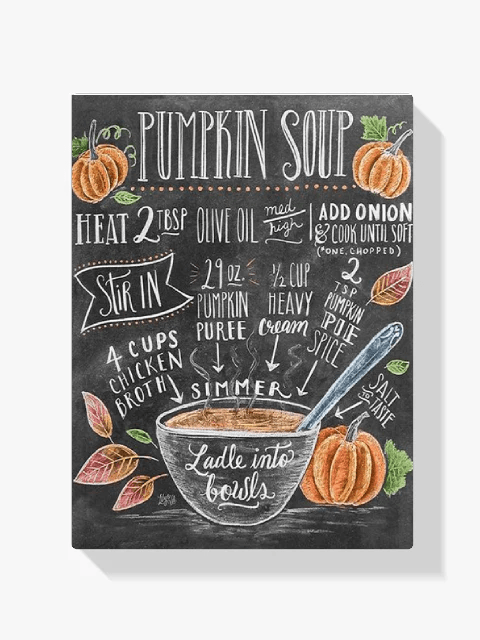 PUMPKIN SOUP
HEAT 2 TBSP OLIVE OIL med high
ADD ONION
& COOK UNTIL SOFT
(*ONE, CHOPPED)
STIR IN
4 CUPS
CHICKEN
BROTH
29 OZ.
PUMPKIN
PUREE
1/2 CUP
HEAVY
cream
2
TSP
PUMPKIN
PIE
SPICE
SALT
TO
TASTE
SIMMER
Ladle into
bowls